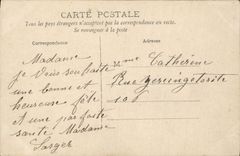 CARTE POSTALE
Tous les pays étrangers n'acceptent pas la correspondance au recto.
Se renseigner à la poste
Correspondance
Adresse
Madame
je vous souhaite
une bonne et
heureuse fête
et une parfaite
santé Madame
Mme Catherine
Rue
108